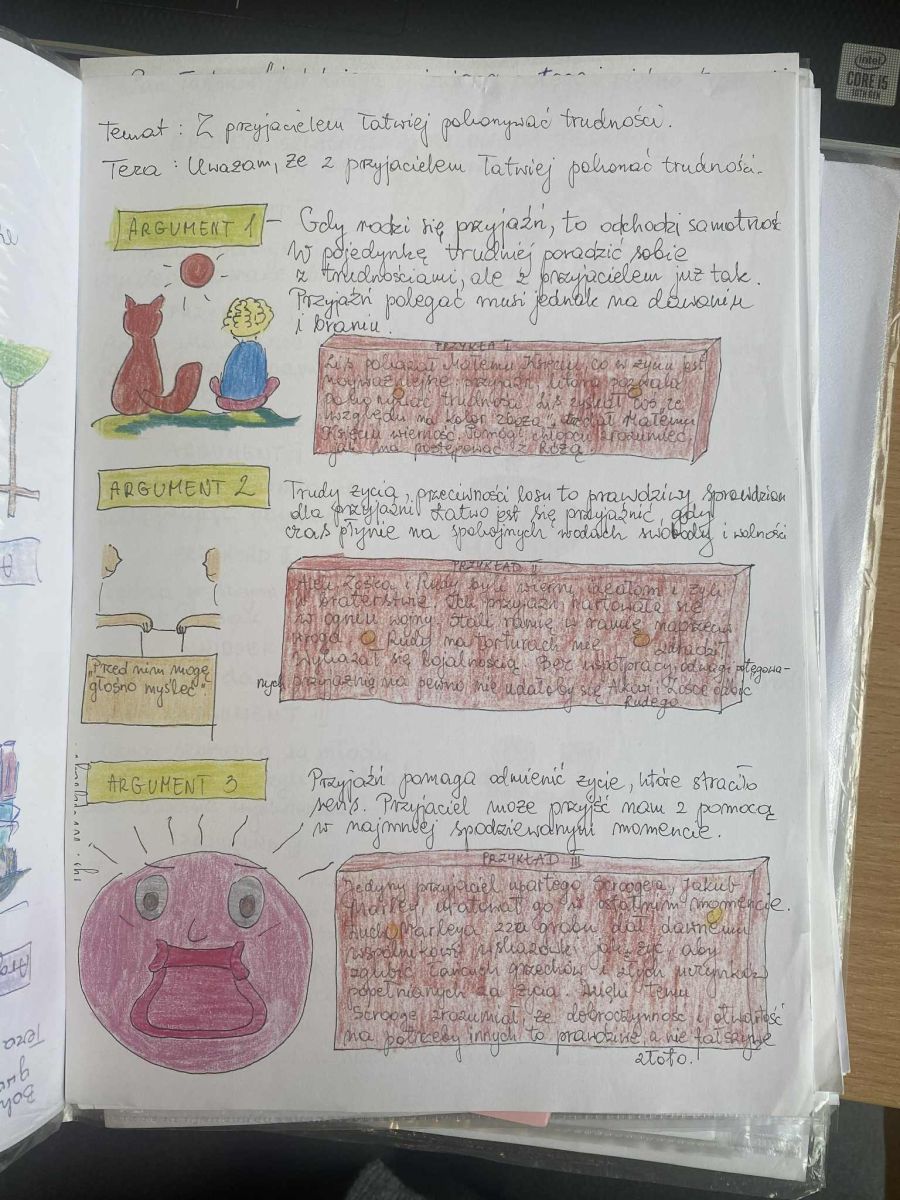 intel
CORE i5
10TH GEN
Temat : Z przyjacielem łatwiej pokonywać trudności.
Teza : Uważam, że z przyjacielem łatwiej pokonać trudności.
ARGUMENT 1 – Gdy rodzi się przyjaźń, to odchodzi samotność
W pojedynkę trudniej poradzić sobie
z trudnościami, ale z przyjacielem już tak.
Przyjaźń polegać musi jednak na dawaniu
i braniu.
PRZYKŁAD I
Lis pokazał Małemu Księciu, co w życiu jest
najważniejsze: przyjaźń, która pozwala
pokonywać trudności. Lis zyskał coś ze
względu na kolor zboża, dodał Małemu
Księciu wierność. Pomógł chłopcu zrozumieć,
jak ma postępować z Różą.
ARGUMENT 2
Trudy życia, przeciwności losu to prawdziwy sprawdzian
dla przyjaźni. Łatwo jest się przyjaźnić, gdy
czas płynie na spokojnych wodach swobody i wolności
PRZYKŁAD II
Alek, Zośka i Rudy byli wierni ideałom i żyli
w braterstwie. Ich przyjaźń hartowała się
w ogniu wojny. Stali ramię w ramię naprzeciw
wroga. Rudy na torturach nie zdradził
Wykazał się lojalnością. Bez współpracy, odwagi potęgowa-
nych przyjaźnią na pewno nie udałoby się Alkowi i Zośce odbić
Rudego.
"Przed nim mogę
głośno myśleć"
ARGUMENT 3
Przyjaźń pomaga odmienić życie, które straciło
sens. Przyjaciel może przyjść nam z pomocą
w najmniej spodziewanym momencie.
PRZYKŁAD III
Jedyny przyjaciel upartego Scrooge'a, Jakub
Marley uratował go w ostatnim momencie.
Duch Marleya zza grobu dał dawnemu
wspólnikowi wskazówki jak żyć, aby
zgubić łańcuch grzechów i złych uczynków
popełnianych za życia. Dzięki temu
Scrooge zrozumiał, że dobroczynność i otwartość
na potrzeby innych to prawdziwe, a nie fałszywe
złoto.